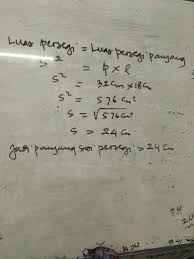 Luas persegi = Luas persegi panjang
s² = p x l
s² = 32cm x 18cm
s² = 576 cm²
s = √576cm²
s = 24 cm
Jadi panjang sisi persegi = 24 cm